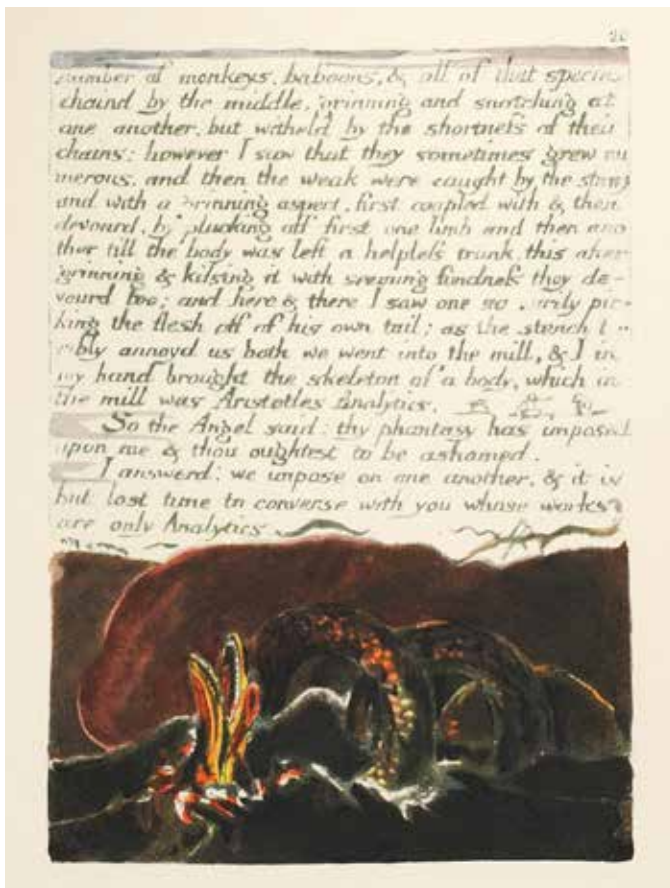 20
number of monkeys, baboons, & all of that species
chaind by the middle, grinning and snatching at
one another, but witheld by the shortness of their
chains: however I saw that they sometimes grew nu
merous, and then the weak were caught by the strong
and with a grinning aspect, first coupled with & then
devourd, by plucking off first one limb and then ano
ther till the body was left a helpless trunk, this after
grinning & kissing it with seeming fondness they de-
vourd too; and here & there I saw one savourily pic-
king the flesh off of his own tail; as the stench
ribly annoyd us both we went into the mill, & I in
my hand brought the skeleton of a body, which in
the mill was Aristotles Analytics.
So the Angel said: thy phantasy has imposed
upon me & thou oughtest to be ashamed.
I answerd: we impose on one another, & it is
but lost time to converse with you whose works
are only Analytics